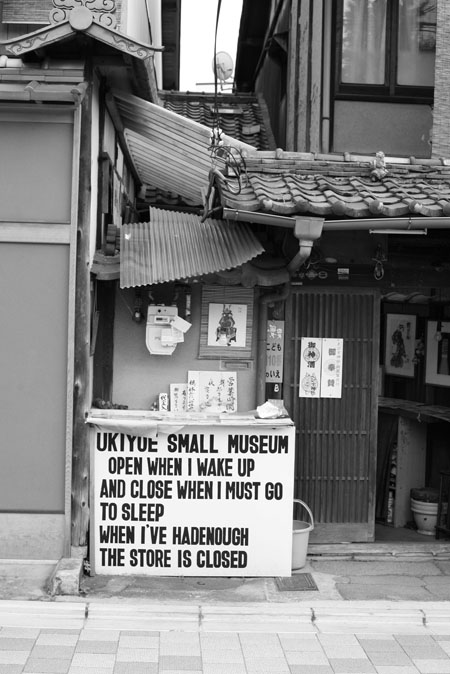 御神酒
御奉賛
こども
UKIYOE SMALL MUSEUM
OPEN WHEN I WAKE UP
AND CLOSE WHEN I MUST GO
TO SLEEP
WHEN I'VE HADENOUGH
THE STORE IS CLOSED